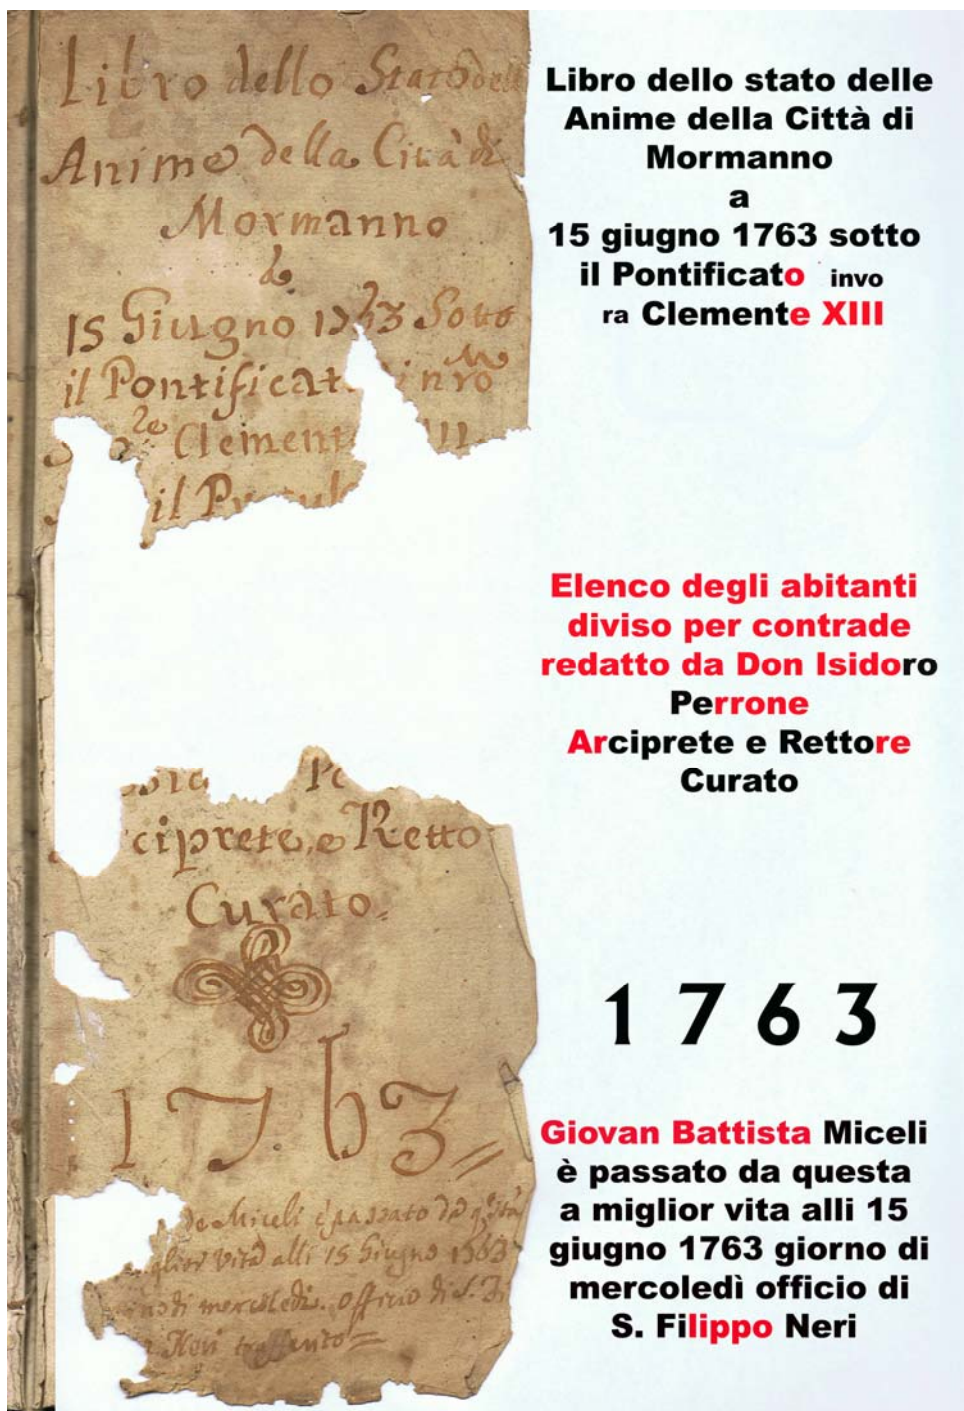 Libro dello Stato dell
Anime della Città di
Mormanno
à
15 Giugno 1763 Sotto
il Pontificat in nro
Clement III
il P
ciprete, e Retto
Curato.
1763
de Miceli è passato da qsta
glior vita alli 15 Giugno 1763
no di mercoledì. officio di S.
Neri
Libro dello stato delle
Anime della Città di
Mormanno
a
15 giugno 1763 sotto
il Pontificato invo
ra Clemente XIII
Elenco degli abitanti
diviso per contrade
redatto da Don Isidoro
Perrone
Arciprete e Rettore
Curato
1763
Giovan Battista Miceli
è passato da questa
a miglior vita alli 15
giugno 1763 giorno di
mercoledì officio di
S. Filippo Neri